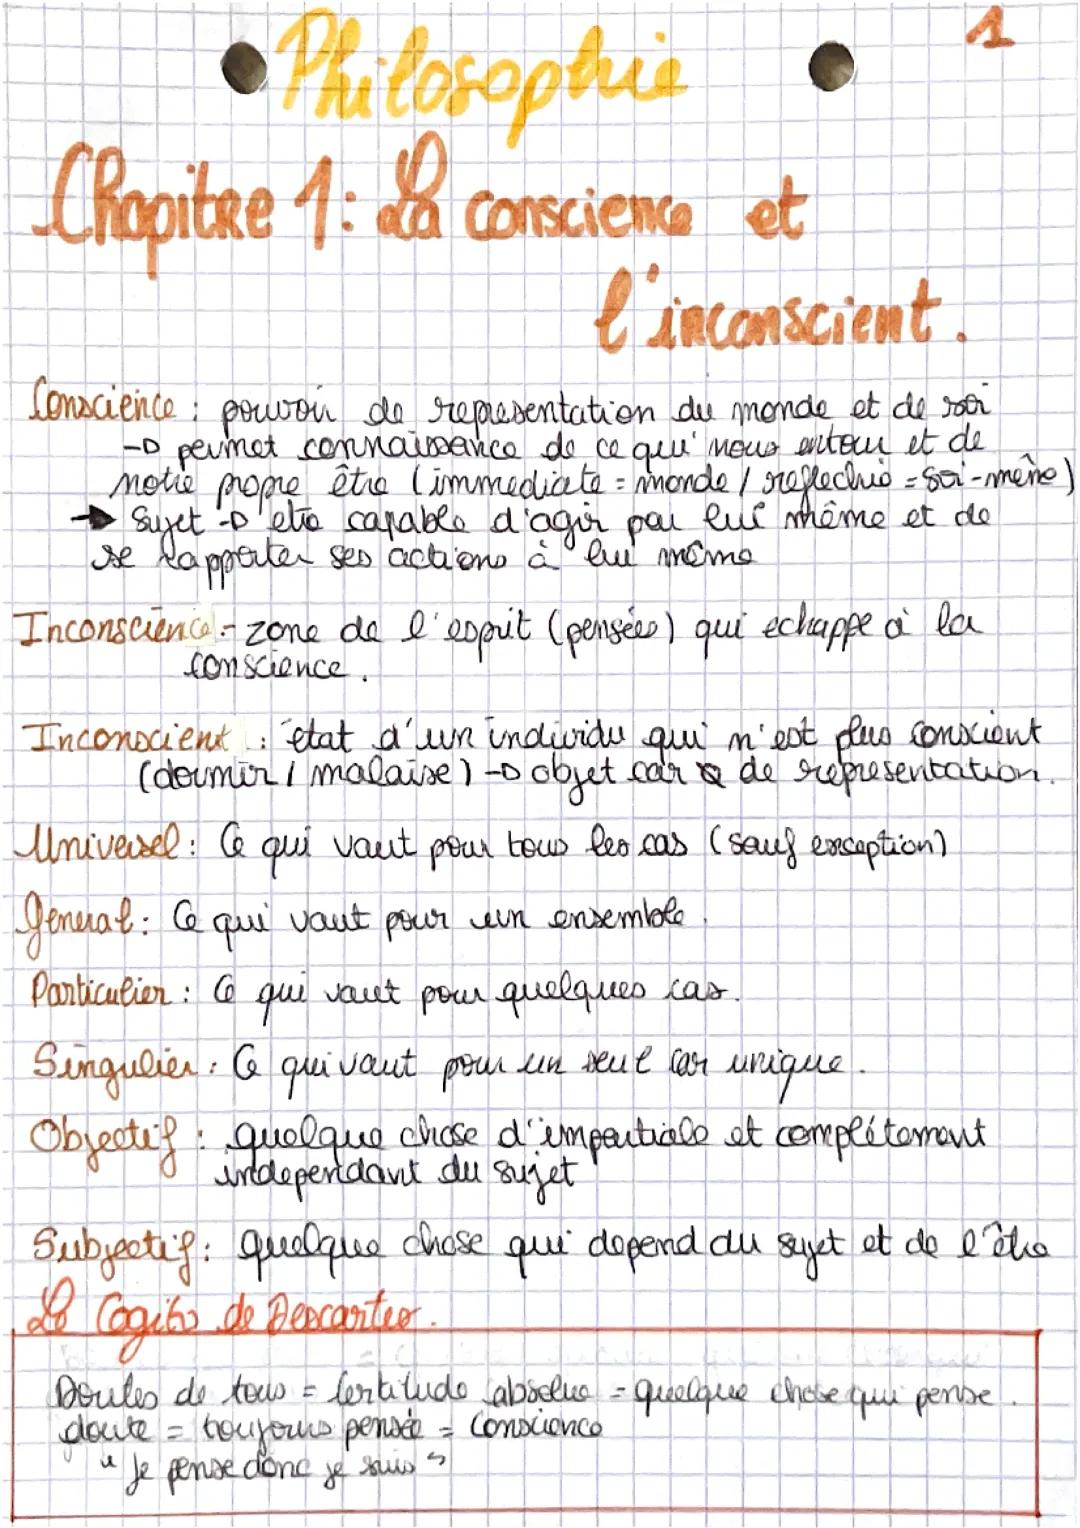 1
Philosophie
Chapitre 1: La conscience et
l'inconscient.
Conscience : pouvoir de representation du monde et de soi
→ permet connaissance de ce qui nous entour et de
notre propre être (immediate = monde / reflechie = soi-même)
→ Sujet → etre capable d'agir par lui même et de
se rapporter ses actions à lui même
Inconscience - zone de l'esprit (pensées) qui echappe à la
conscience.
Inconscient : état d'un individu qui n'est plus conscient
(dormir / malaise) → objet car de representation.
Universel : Ce qui vaut pour tous les cas (sauf exception)
General : Ce qui vaut pour un ensemble.
Particulier : Ce qui vaut pour quelques cas.
Singulier : Ce qui vaut pour un seul car unique.
Objectif : quelque chose d'impartiale et complétement
independant du sujet
Subjectif : quelque chose qui depend du sujet et de l'être
Le Cogito de Descartes.
Doutes de tous = Certitude absolue = quelque chose qui pense.
doute = toujours pensée = Conscience
"je pense donc je suis"